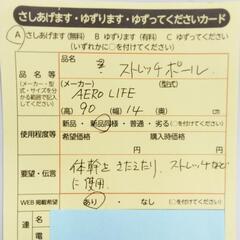 さしあげます・ゆずります・ゆずってくださいカード
Ⓐ さしあげます(無料) B ゆずります(有料) C ゆずってください
(いずれかに○を付けてください)
品名等
(メーカー・型式・サイズを分かる範囲で記入)
ストレッチポール
(メーカー) (型式)
AERO LIFE
(高) (幅) (奥)
90 × 14 ×
使用程度等
新品・新品同様・普通・劣る(○を付けてください)
希望価格 購入時価格
要望・伝言
体幹をきたえたり、ストレッチなど
に使用。
WEB掲載希望
あり・なし (○を付けてください)
連